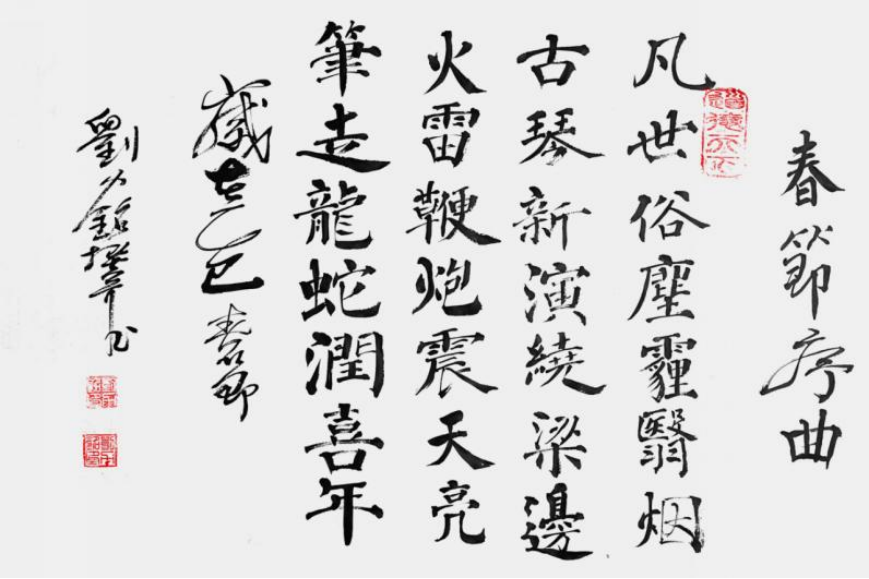 春節序曲
凡世俗塵霾翳烟
古琴新演繞梁邊
火雷鞭炮震天亮
筆走龍蛇潤喜年
歲在乙巳春節
劉撰书